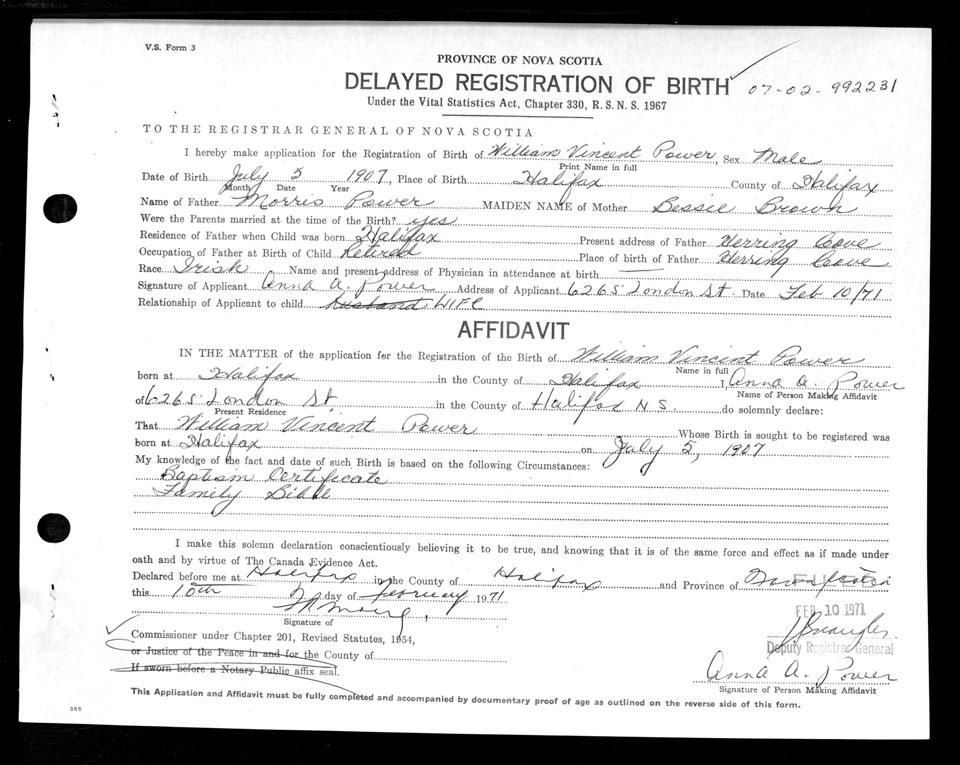 V.S. Form 3
PROVINCE OF NOVA SCOTIA
DELAYED REGISTRATION OF BIRTH 07-02-992231
Under the Vital Statistics Act, Chapter 330, R.S.N.S. 1967
TO THE REGISTRAR GENERAL OF NOVA SCOTIA
I hereby make application for the Registration of Birth of William Vincent Power, Sex Male
Print Name in full
Date of Birth July 5 1907, Place of Birth Halifax County of Halifax
Month Date Year
Name of Father Morris Power MAIDEN NAME of Mother Bessie Brown
Were the Parents married at the time of the Birth? yes
Residence of Father when Child was born Halifax Present address of Father Herring Cove
Occupation of Father at Birth of Child Retired Place of birth of Father Herring Cove
Race Irish Name and present address of Physician in attendance at birth —
Signature of Applicant Anna A. Power Address of Applicant 6265 London St. Date Feb 10/71
Relationship of Applicant to child husband WIFE
AFFIDAVIT
IN THE MATTER of the application for the Registration of the Birth of William Vincent Power
Name in full
born at Halifax in the County of Halifax I, Anna A. Power
Name of Person Making Affidavit
of 6265 London St. in the County of Halifax N.S. do solemnly declare:
Present Residence
That William Vincent Power Whose Birth is sought to be registered was
born at Halifax on July 5, 1907
My knowledge of the fact and date of such Birth is based on the following Circumstances:
Baptism Certificate
Family Bible
I make this solemn declaration conscientiously believing it to be true, and knowing that it is of the same force and effect as if made under
oath and by virtue of The Canada Evidence Act.
Declared before me at Halifax in the County of Halifax and Province of
this 10th day of February 1971
FEB 10 1971
Signature of
Commissioner under Chapter 201, Revised Statutes, 1954,
Deputy Registrar General
or Justice of the Peace in and for the County of
If sworn before a Notary Public affix seal.
Anna A. Power
Signature of Person Making Affidavit
This Application and Affidavit must be fully completed and accompanied by documentary proof of age as outlined on the reverse side of this form.
365